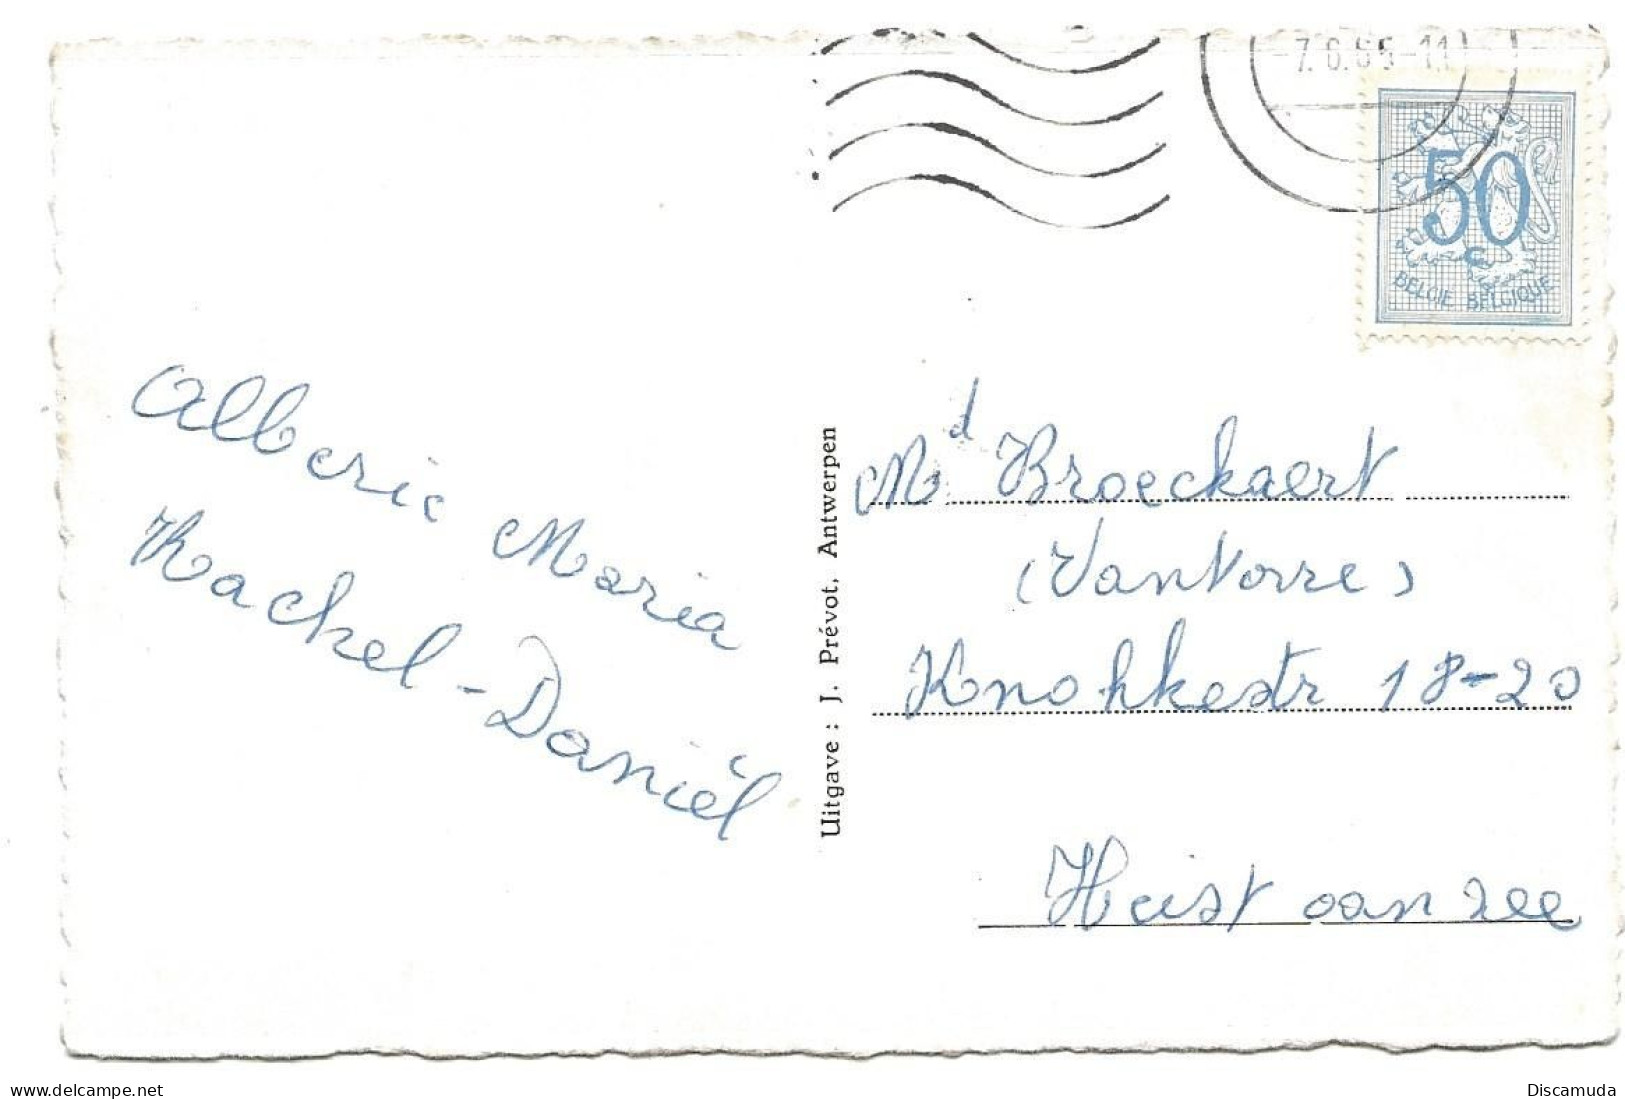 -7.6.55-11
50
c
BELGIE BELGIQUE
Alberic Maria
Rachel-Daniël
Uitgave : J. Prévot, Antwerpen
Md Broeckaert
(Vantorre)
Knohkestr 18-20
Heist aan zee
delcampe.net
Discamuda